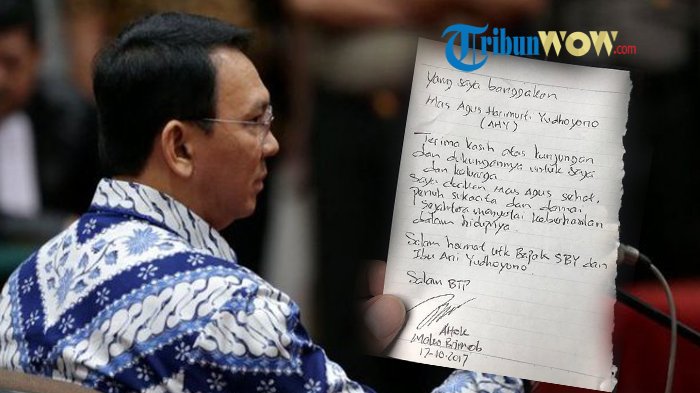 TribunWOW.com
Yang saya banggakan
Mas Agus Harimurti Yudhoyono
(AHY)
Terima kasih atas kunjungan
dan dukungannya untuk saya
dan keluarga
Saya doakan Mas Agus sehat,
penuh sukacita dan damai
Sejahtera menyertai keberhasilan
dalam hidupnya
Salam hormat utk Bapak SBY dan
Ibu Ani Yudhoyono
Salam BTP
Ahok
Mako Brimob
17-10-2017